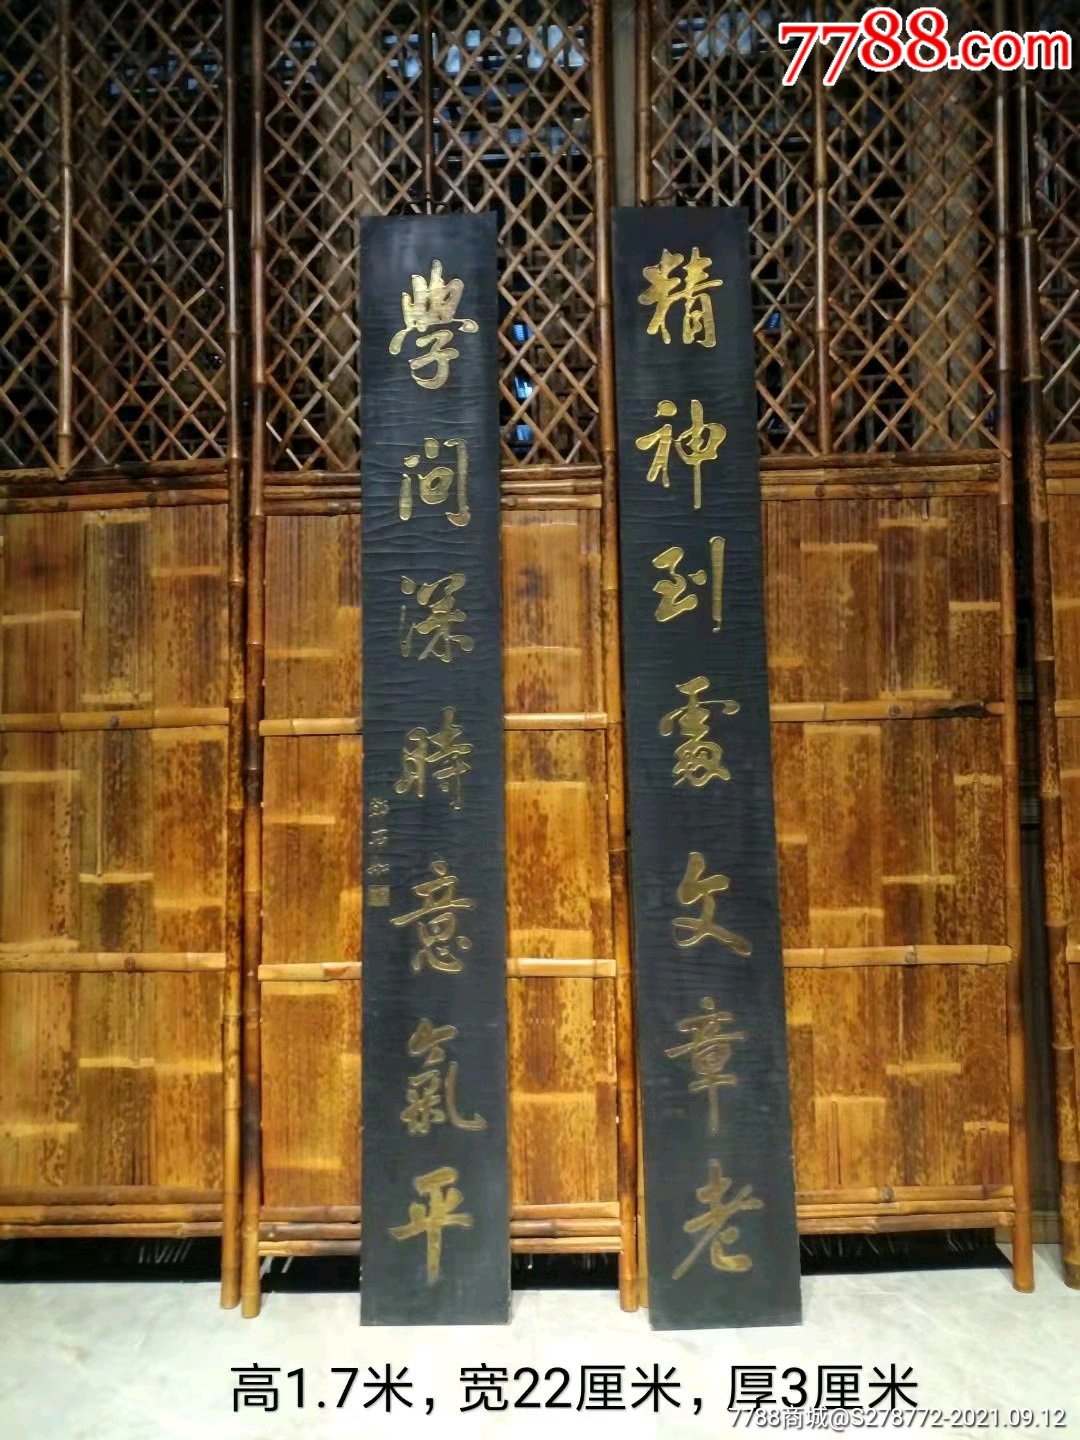 7788.com
精神到處文章老
學問深時意氣平
高1.7米，宽22厘米，厚3厘米
7788商城@S278772-2021.09.12